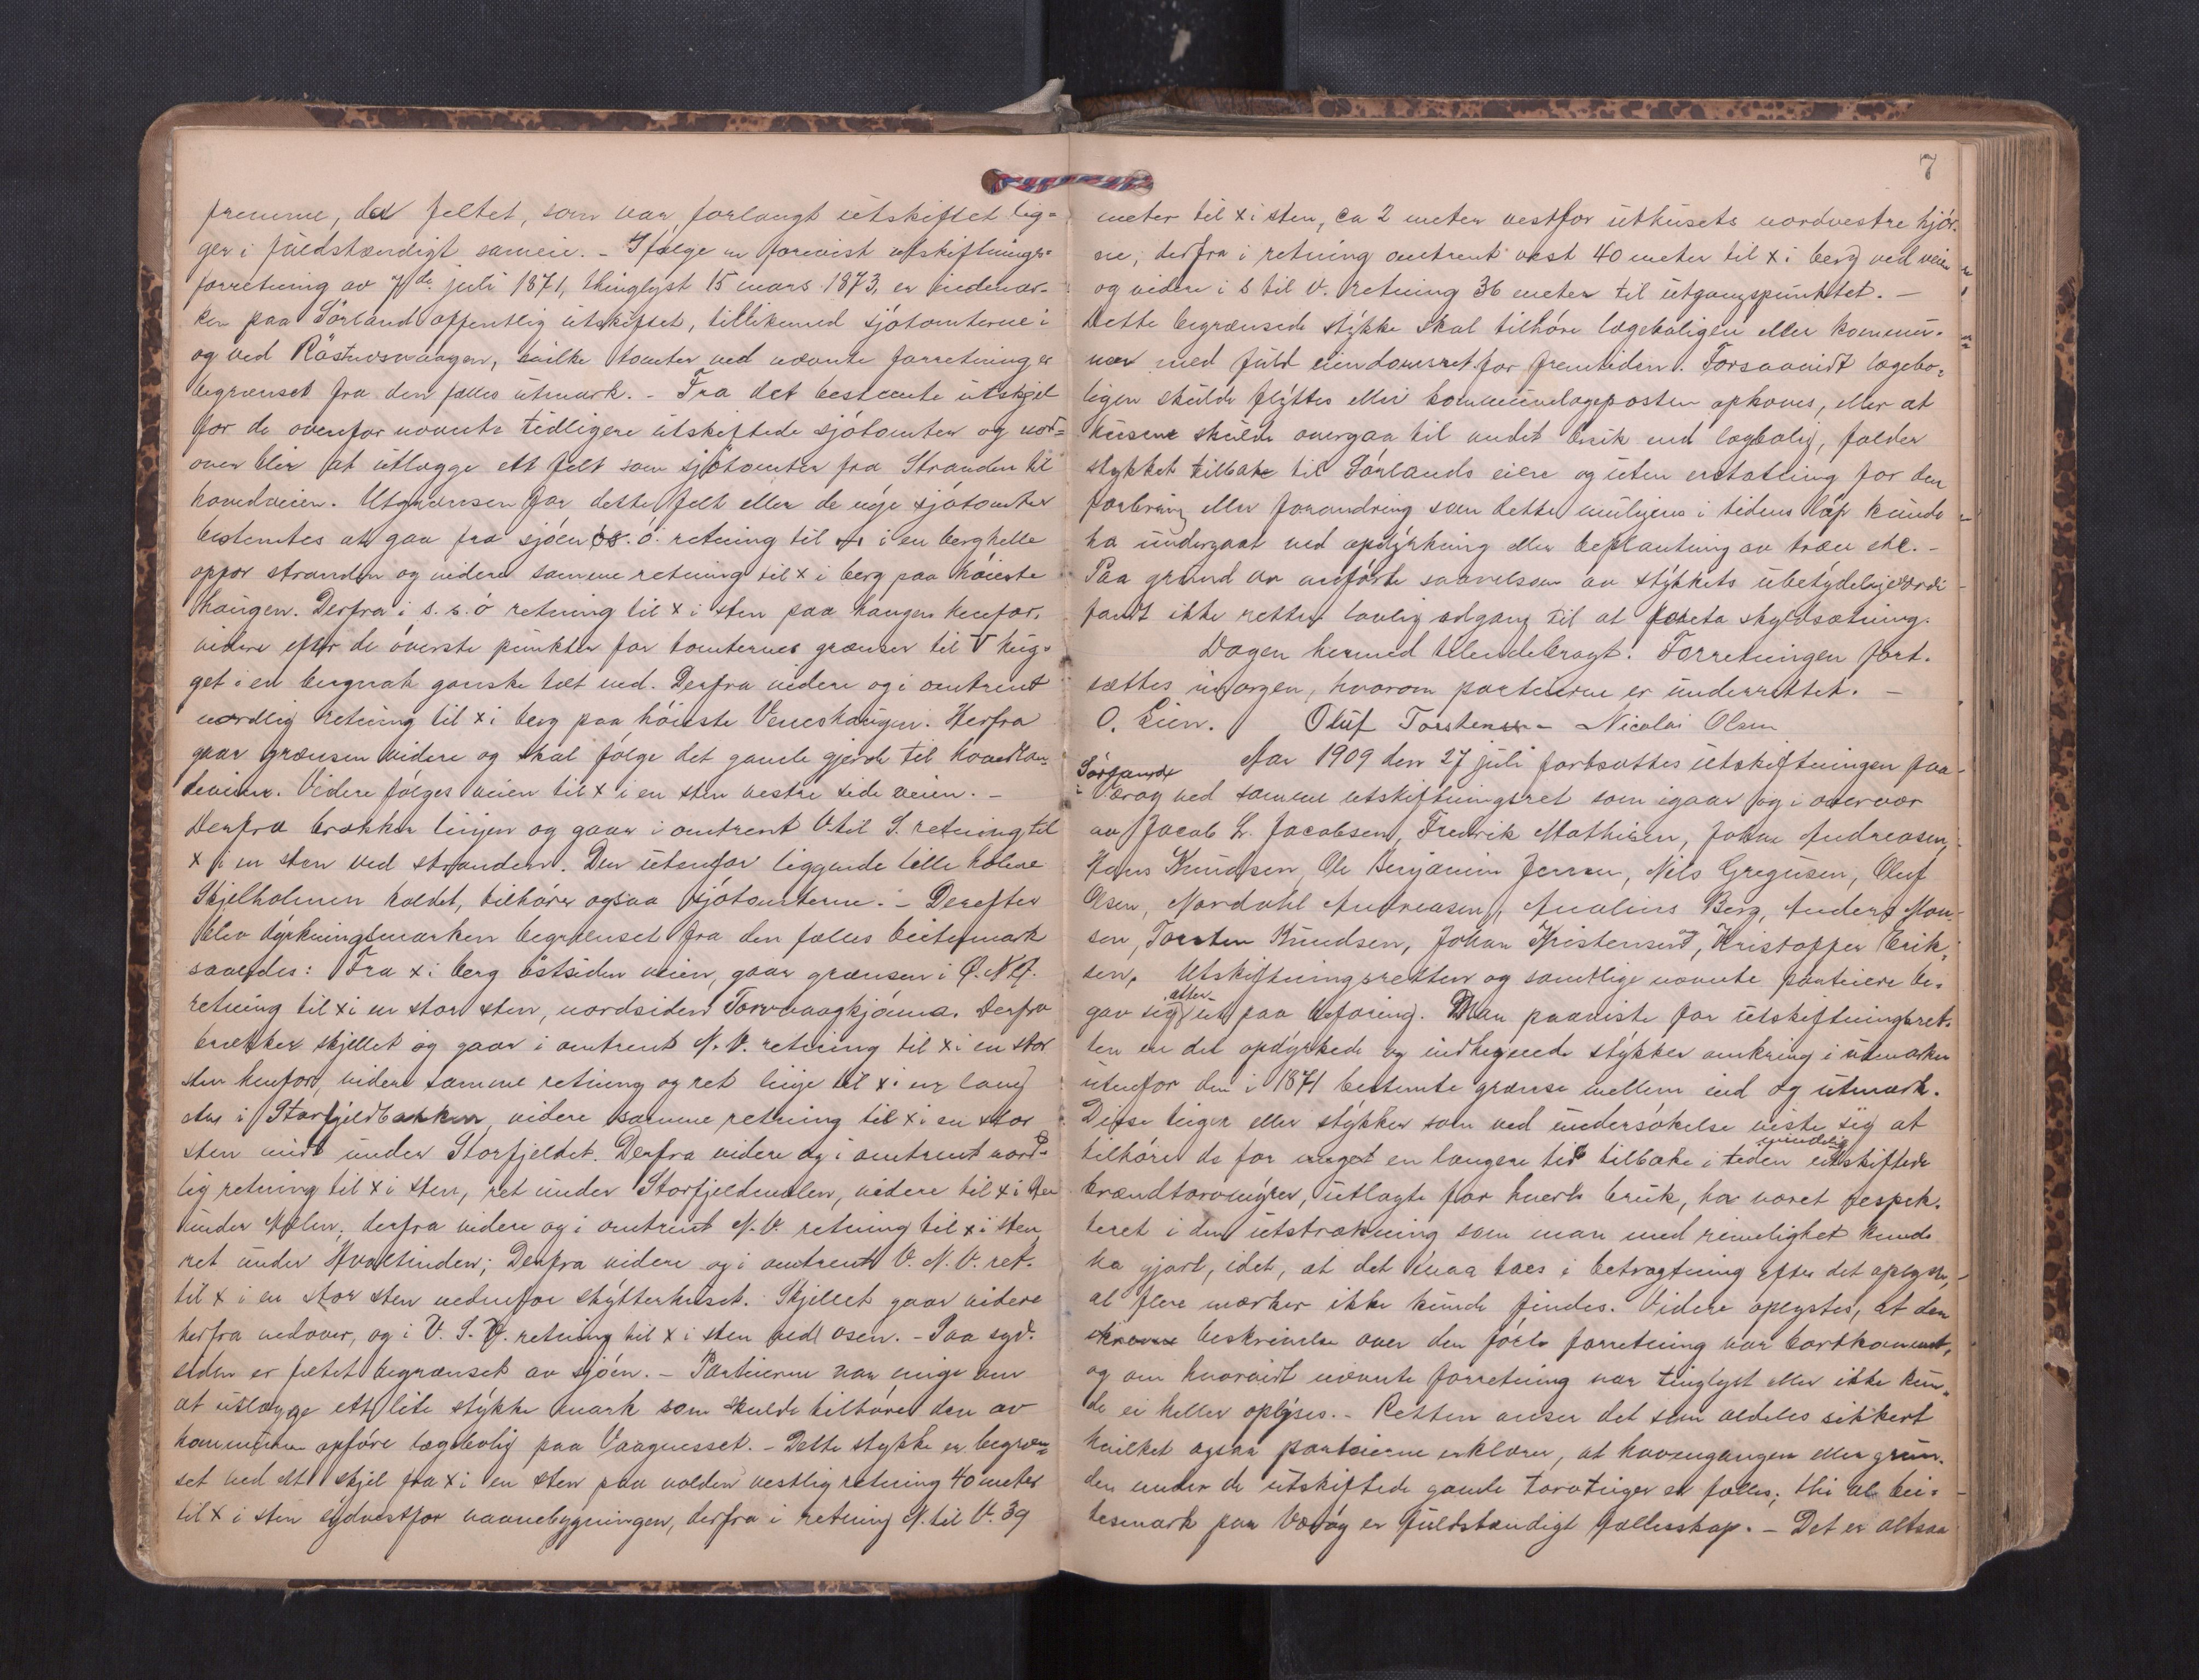 fremme, da feltet, som var forlangt utskiftet lig-
ger i fuldstændigt sameie. - Ifølge en forevist utskiftnings-
forretning av 7de juli 1871, thinglyst 15 mars 1873, er indmar-
ken paa Sørland offentlig utskiftet, tillikemed sjøtomterne i
og ved Røstnesvaagen, hvilke tomter ved nævnte forretning er
begrænset fra den fælles utmark. - Fra det bestemte utskjel
for de ovenfor nævnte tidligere utskiftede sjøtomter og nord-
over blir at utlægge ett felt som sjøtomter fra Stranden til
hovedveien. Utgrænsen for dette felt eller de nye sjøtomter
bestemtes at gaa fra sjøen i s. ø. retning til x i en berghelle
oppor stranden og videre samme retning til x i berg paa høieste
haugen. Derfra i s. s. ø retning til x i sten paa haugen henfor,
videre efter de øverste punkter for tomternes grænser til V hug-
get i en bergnak ganske tæt ved. Derfra videre og i omtrent
nordlig retning til x i berg paa høieste Veneshaugen. Herfra
gaar grænsen videre og skal følge det gamle gjerde til hovedlan-
deveien. Videre følges veien til x i en sten vestre side veien. -
Derfra brækker linjen og gaar i omtrent V. til S. retning til
x i en sten ved stranden. Den utenfor liggende lille holme
Skjelholmen kaldet, tilhører ogsaa sjøtomterne. - Derefter
blev dyrkningsmarken begrænset fra den fælles beitesmark
saaledes: Fra x i berg østsiden veien, gaar grænsen i Ø. N. Ø.
retning til x i en stor sten, nordsiden Torvvaagkjønna. Derfra
brækker skjellet og gaar i omtrent N. V. retning til x i en stor
sten henfor, videre samme retning og ret linje til x i en lang
sten i Storfjeldbakken, videre samme retning til x i en stor
sten midt under Storfjeldet. Derfra videre og i omtrent nord-
lig retning til x i sten, ret under Storfjeldmælen, videre til x i sten
under Mælen, derfra videre og i omtrent N. V. retning til x i sten
ret under Hvaltinden; Derfra videre og i omtrent V. N. V. ret.
til x i en stor sten nedenfor skytterhuset. Skjellet gaar videre
herfra nedover, og i V. S. V. retning til x i sten ved osen. - Paa syd-
siden er feltet begrænset av sjøen. - Partierne var enige om
at utlægge ett lite stykke mark som skulde tilhøre den av
kommunen opføre lægebolig paa Vaagnesset. - Dette stykke er begræn-
set ved ett skjel fra x i en sten paa volden vestlig retning 40 meter
til x i sten sydvestfor vaanebygningen, derfra i retning N. til V. 39
7
meter til x i sten, ca 2 meter vestfor uthusets nordvestre hjør-
ne, derfra i retning omtrent øst 40 meter til x i berg ved veien
og videre i S til V. retning 36 meter til utgangspunktet. -
Dette begrænsede stykke skal tilhøre lægeboligen eller kommu-
nen med fuld eiendomsret for fremtiden. Forsaavidt lægebo-
ligen skulde flyttes eller kommunelægeposten ophæves, eller at
husene skulde overgaa til andet bruk end lægbolig, falder
stykket tilbake til Sørlands eiere og uten erstatning for den
forbring eller forandring som dette muligens i tidens løp kunde
ha undergaat ved opdyrkning eller beplantning av træer etc. -
Paa grund av anførte saavelsom av stykkets ubetydelige værdi
fandt ikke retten lovlig adgang til at foreta skyldsætning.
Dagen hermed tilendebragt. Forretningen fort-
sættes imorgen, hvorom partierne er underrettet. -
O. Lien. Oluf Torstensen - Nicolai Olsen
Aar 1909 den 27 juli fortsattes utskiftningen paa
Sørland
i Værøy ved samme utskiftningsret som igaar og i overvær
av Jacob L. Jacobsen, Fredrik Mathisen, Johan Andreasen,
Hans Knudsen, Ole Benjamin Jensen, Nils Gregusen, Oluf
Olsen, Nordahl Andreasen, Analius Berg, Anders Mon-
sen, Torsten Knudsen, Johan Kristensen, Kristoffer Erik-
sen. Utskiftningsretten og samtlige nævnte partiere be-
gav sig atter ut paa befaring. Man paaviste for utskiftningsret-
ten en del opdyrkede og indhegnede stykker omkring i utmarken
utenfor den i 1871 bestemte grænse mellem ind og utmark.
Disse teiger eller stykker som ved undersøkelse viste sig at
tilhøre de for noget en længere tid tilbake i tiden utskiftede
brændtorvmyrer, utlagte for hvert bruk, har været respek-
teret i den utstrækning som man med rimelighet kunde
ha gjort, idet, at det maa taes i betragtning efter det oplyste,
at flere mærker ikke kunde findes. Videre oplystes, at den
skrevne beskrivelse over den førte forretning var bortkommet,
og om hvorvidt nævnte forretning var tinglyst eller ikke kun-
de ei heller oplyses. - Retten anser det som aldeles sikkert
hvilket ogsaa partierne erklærer, at havnegangen eller grun-
den under de utskiftede gamle torvteiger er fælles, thi al bei-
tesmark paa Værøy er fuldstændigt fællesskap. - Det er altsaa